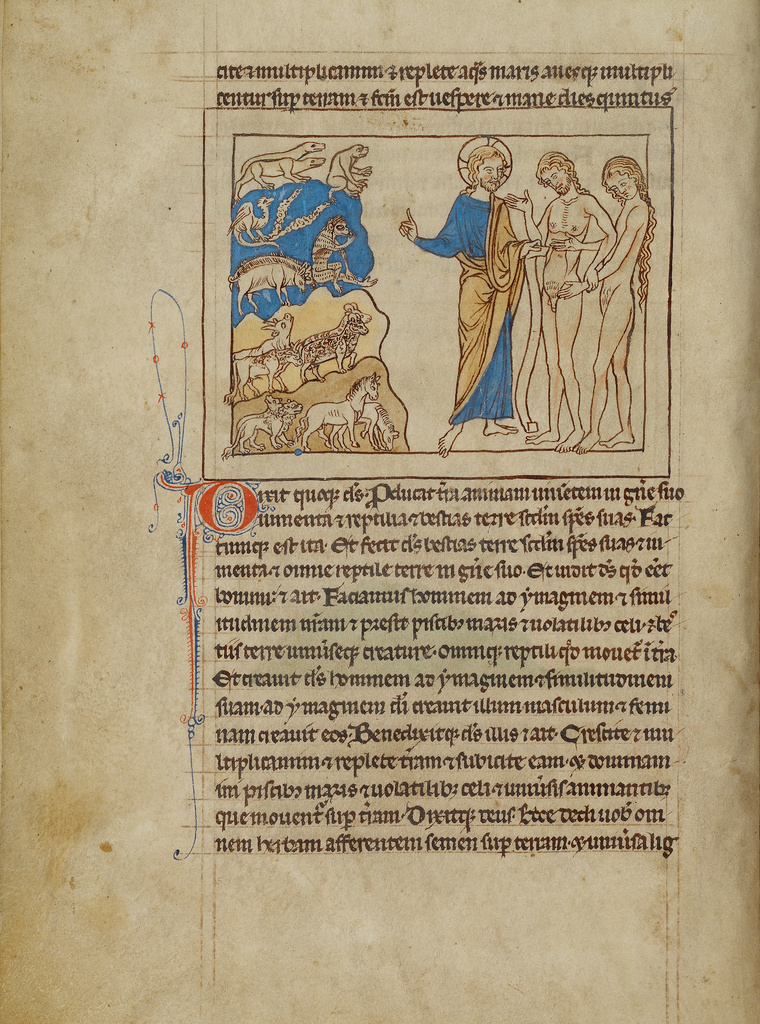 cite ⁊ multiplicamini ⁊ replete aq̅s maris auesq; multipli
centur sup terram ⁊ fc̅m est uespere ⁊ mane dies quintus
Dixit quoq; ds̅. Producat t̅ra animam uiuentem in gn̅e suo
iumenta ⁊ reptilia ⁊ bestias terre scd̅m spe̅s suas. Fac
tumq; est ita. Et fecit ds̅ bestias terre scd̅m spe̅s suas ⁊ iu
menta ⁊ omne reptile terre in gn̅e suo. Et uidit ds̅ qd̅ e̅et
bonum: ⁊ ait. Faciamus hominem ad ymaginem ⁊ simil
itudinem nr̅am ⁊ presit piscib; maris ⁊ uolatilib; celi ⁊ be
tiis terre uniuseq; creature. omniq; reptili qd̅ mouet̅ i̅ t̅ra
Et creauit ds̅ hominem ad ymaginem ⁊ similitudinem
suam. ad ymaginem di̅ creauit illum masculum ⁊ femi
nam creauit eos. Benedixitq; ds̅ illis ⁊ ait. Crescite ⁊ mu
ltiplicamini ⁊ replete t̅ram ⁊ subicite eam. ⁊ dominam
ini piscib; maris ⁊ uolatilib; celi ⁊ uniu̅sis animantib;
que mouent̅ sup t̅ram. Dixitq; deus. Ecce dedi uob̅ om
nem herbam afferentem semen sup terram. ⁊ uniu̅sa lig